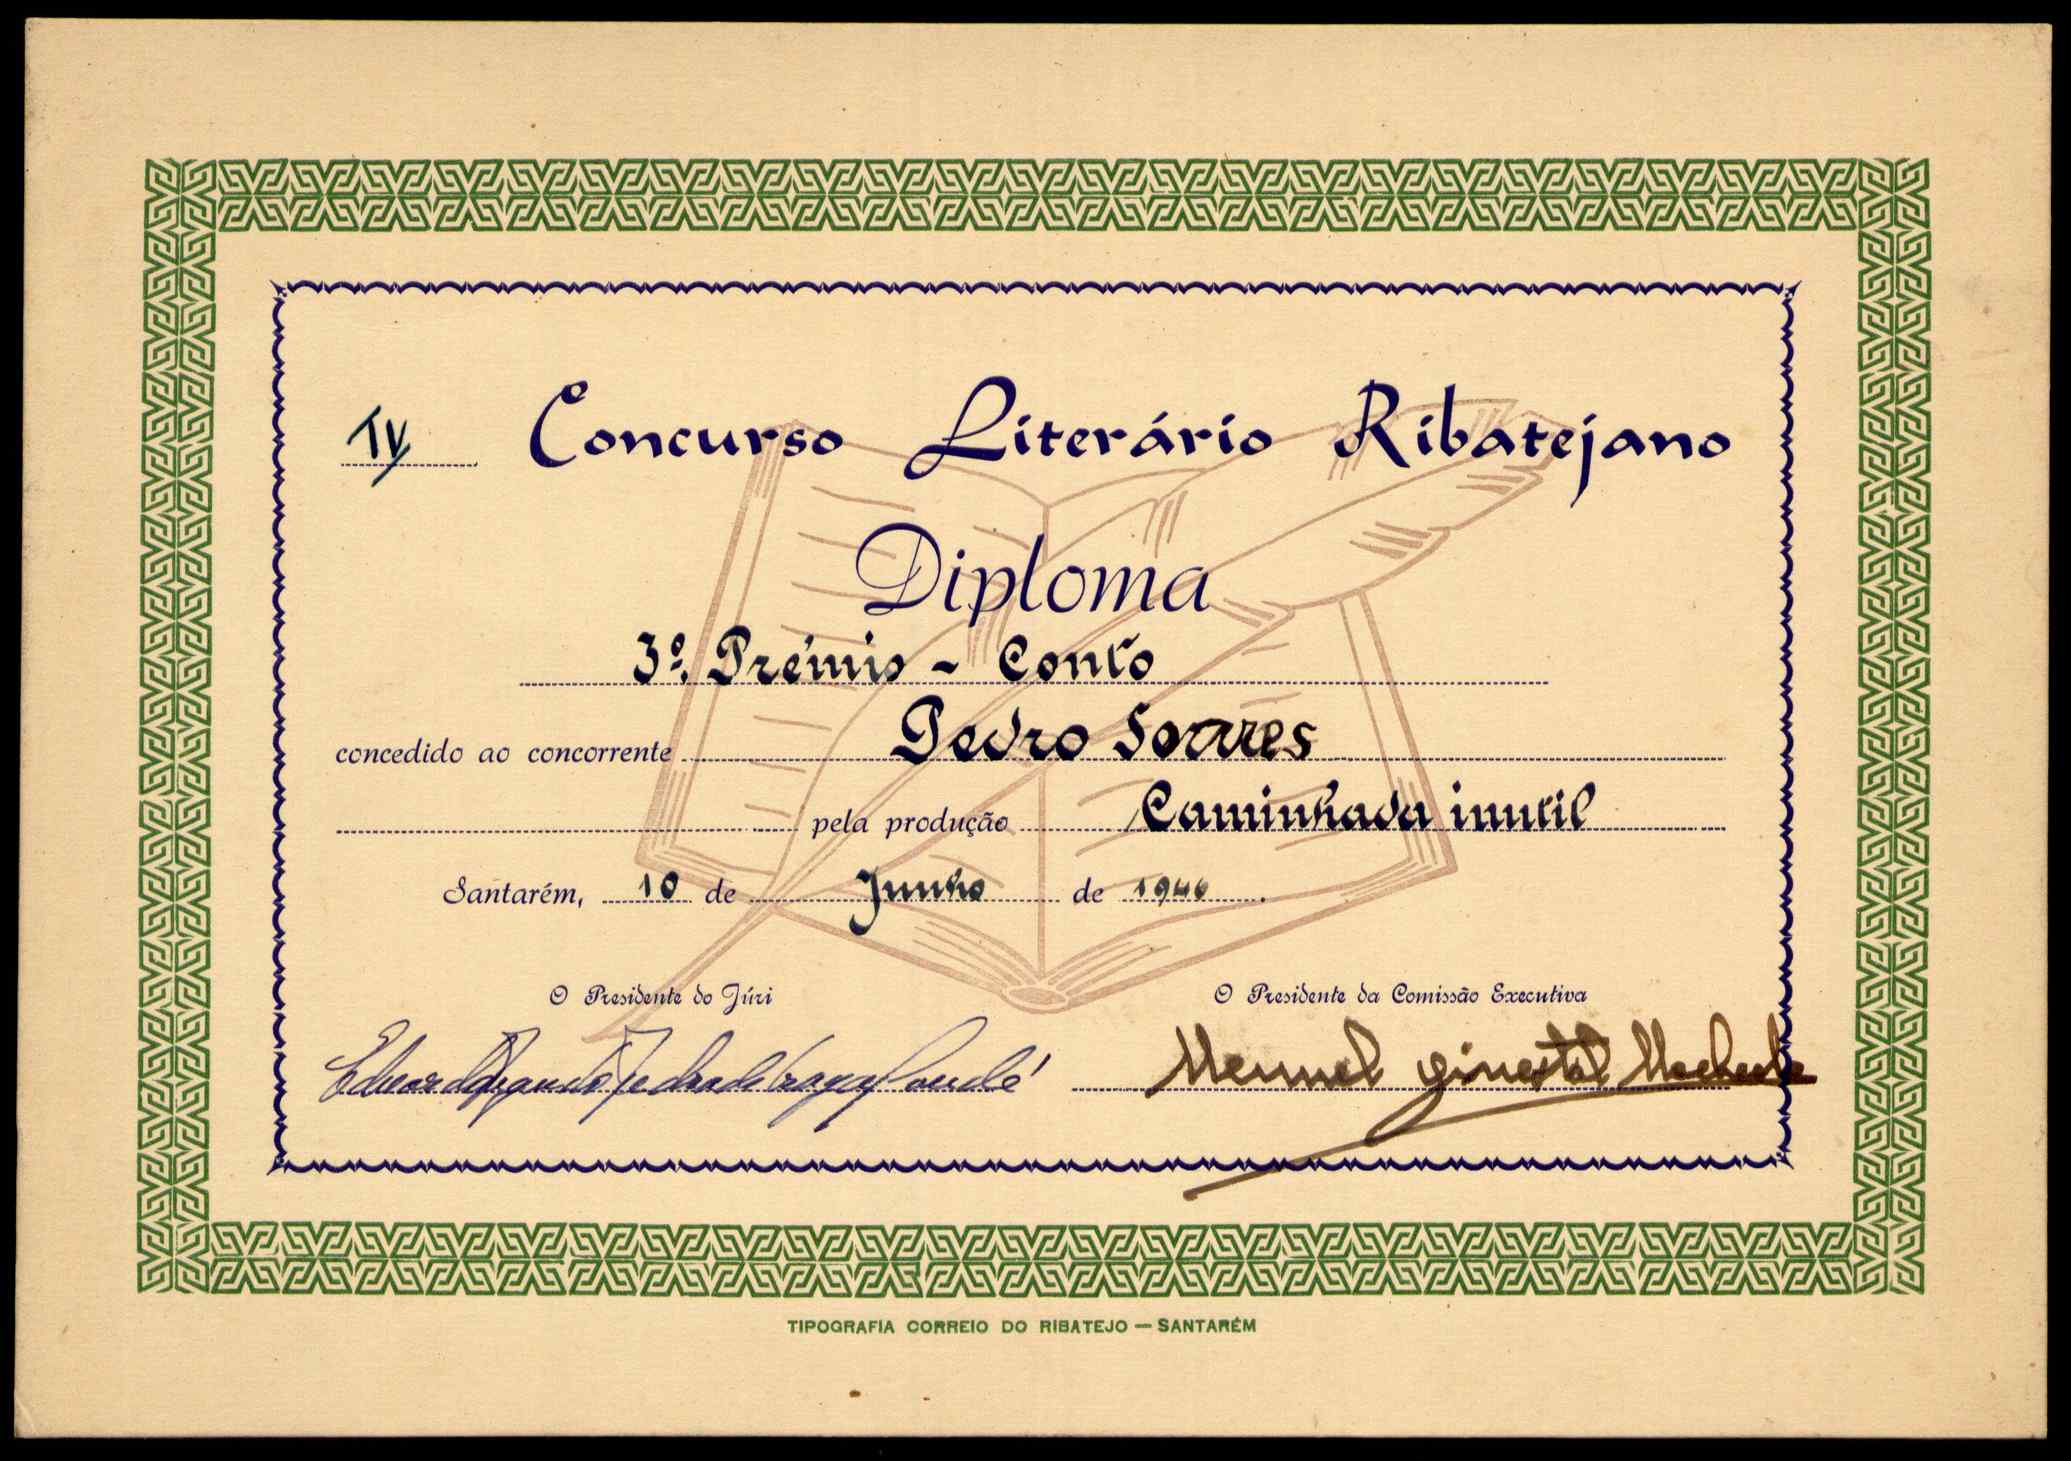 IV Concurso Literário Ribatejano
Diploma
3º. Prémio - Conto
concedido ao concorrente Pedro Soares
pela produção Caminhada inutil
Santarém, 10 de Junho de 1946.
O Presidente do Júri O Presidente da Comissão Executiva
Manuel Ginestal Machado
TIPOGRAFIA CORREIO DO RIBATEJO — SANTARÉM